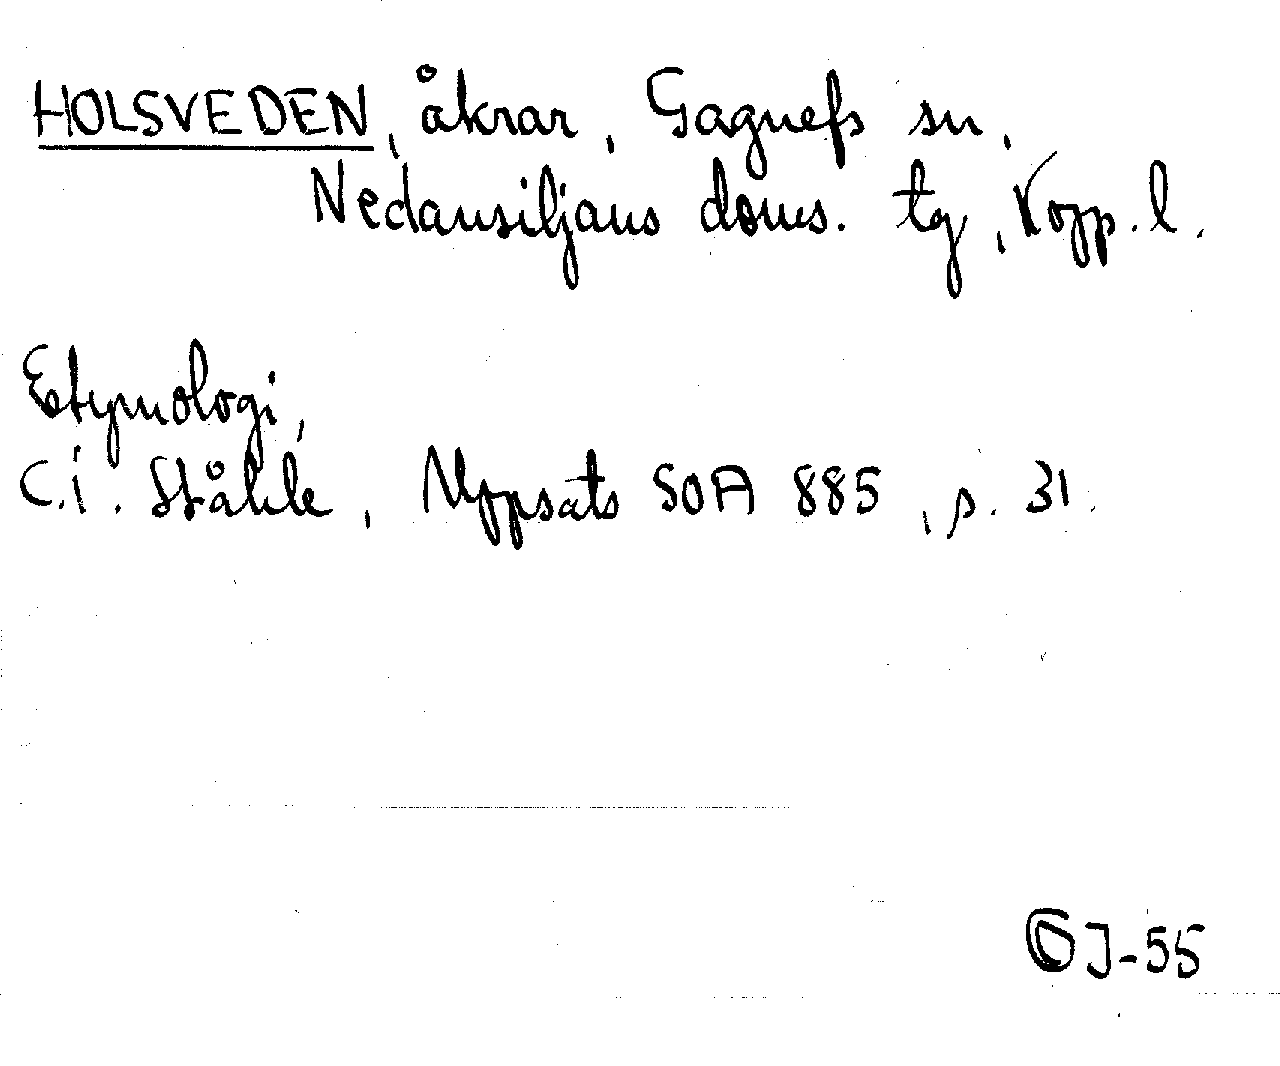 HOLSVEDEN, åkrar, Gagnefs sn,
Nedansiljans doms. tg, Kopp. l.
Etymologi,
C.I. Ståhle, Uppsats SOA 885, s. 31.
J-55